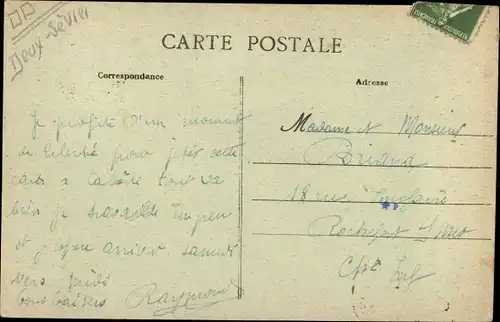 Deux-Sèvres
CARTE POSTALE
Correspondance
Adresse
Je profite d'un moment
de liberté pour jeter cette
carte à la tout va
bien je travaille un peu
et arriver samedi
vers midi
bons baisers Raymond
Madame et Monsieur
Briand
18 rue
Rochefort s/mer
Chte Inf